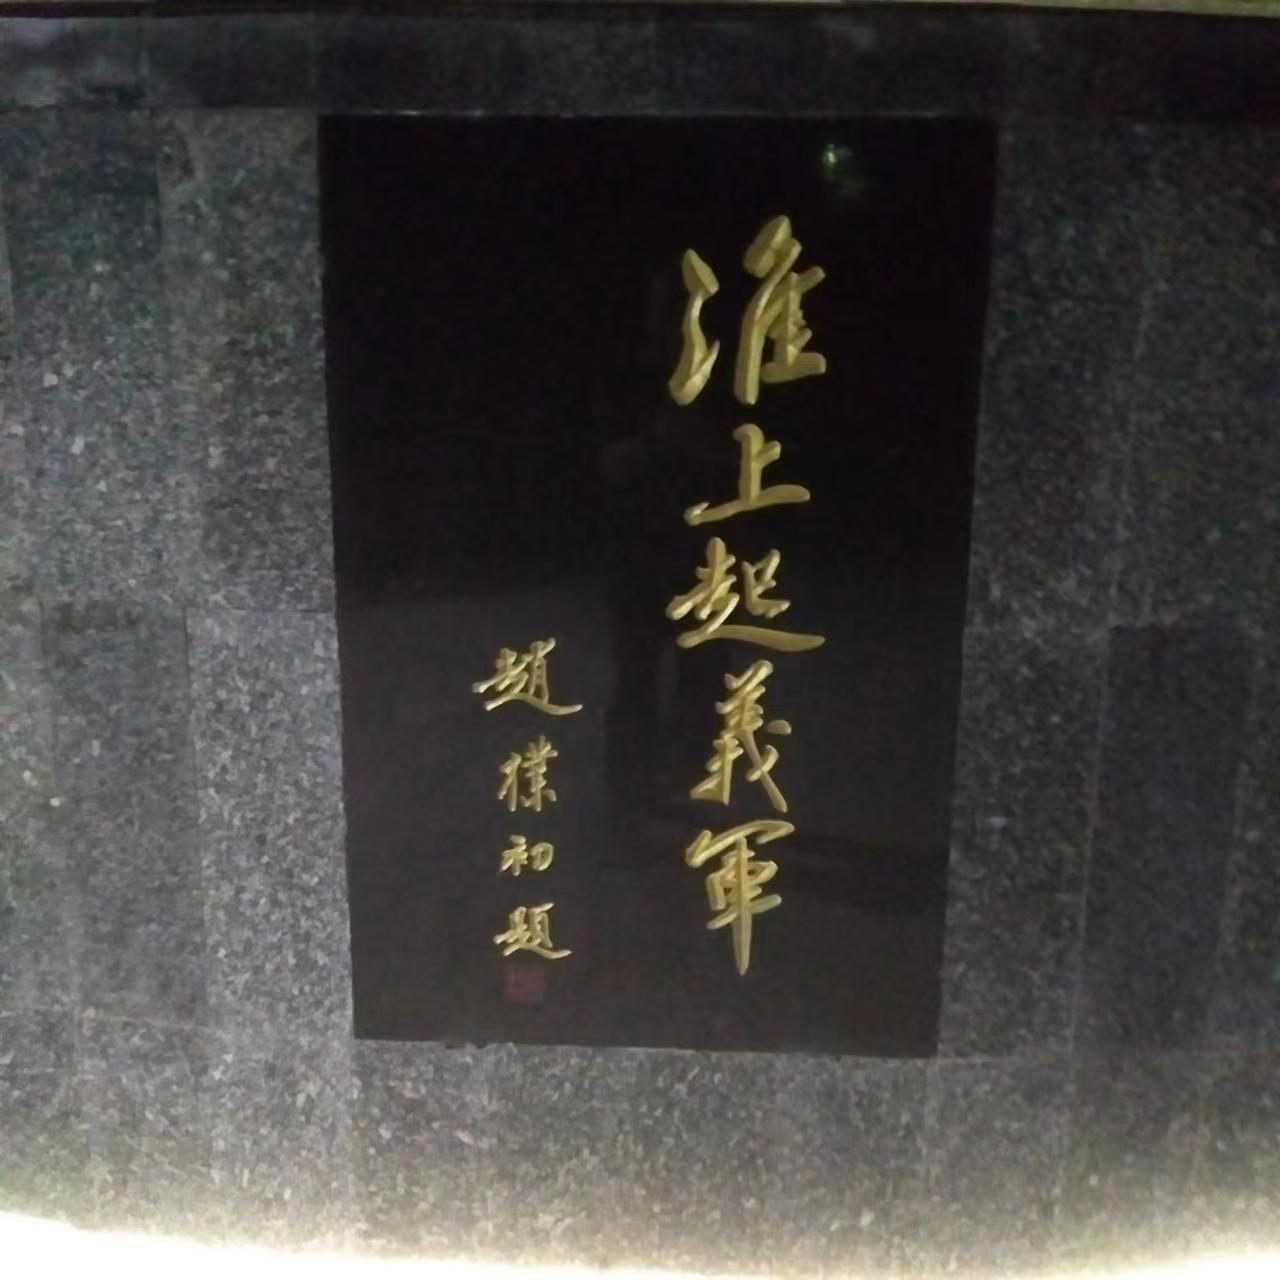 淮上起義軍
趙樸初題